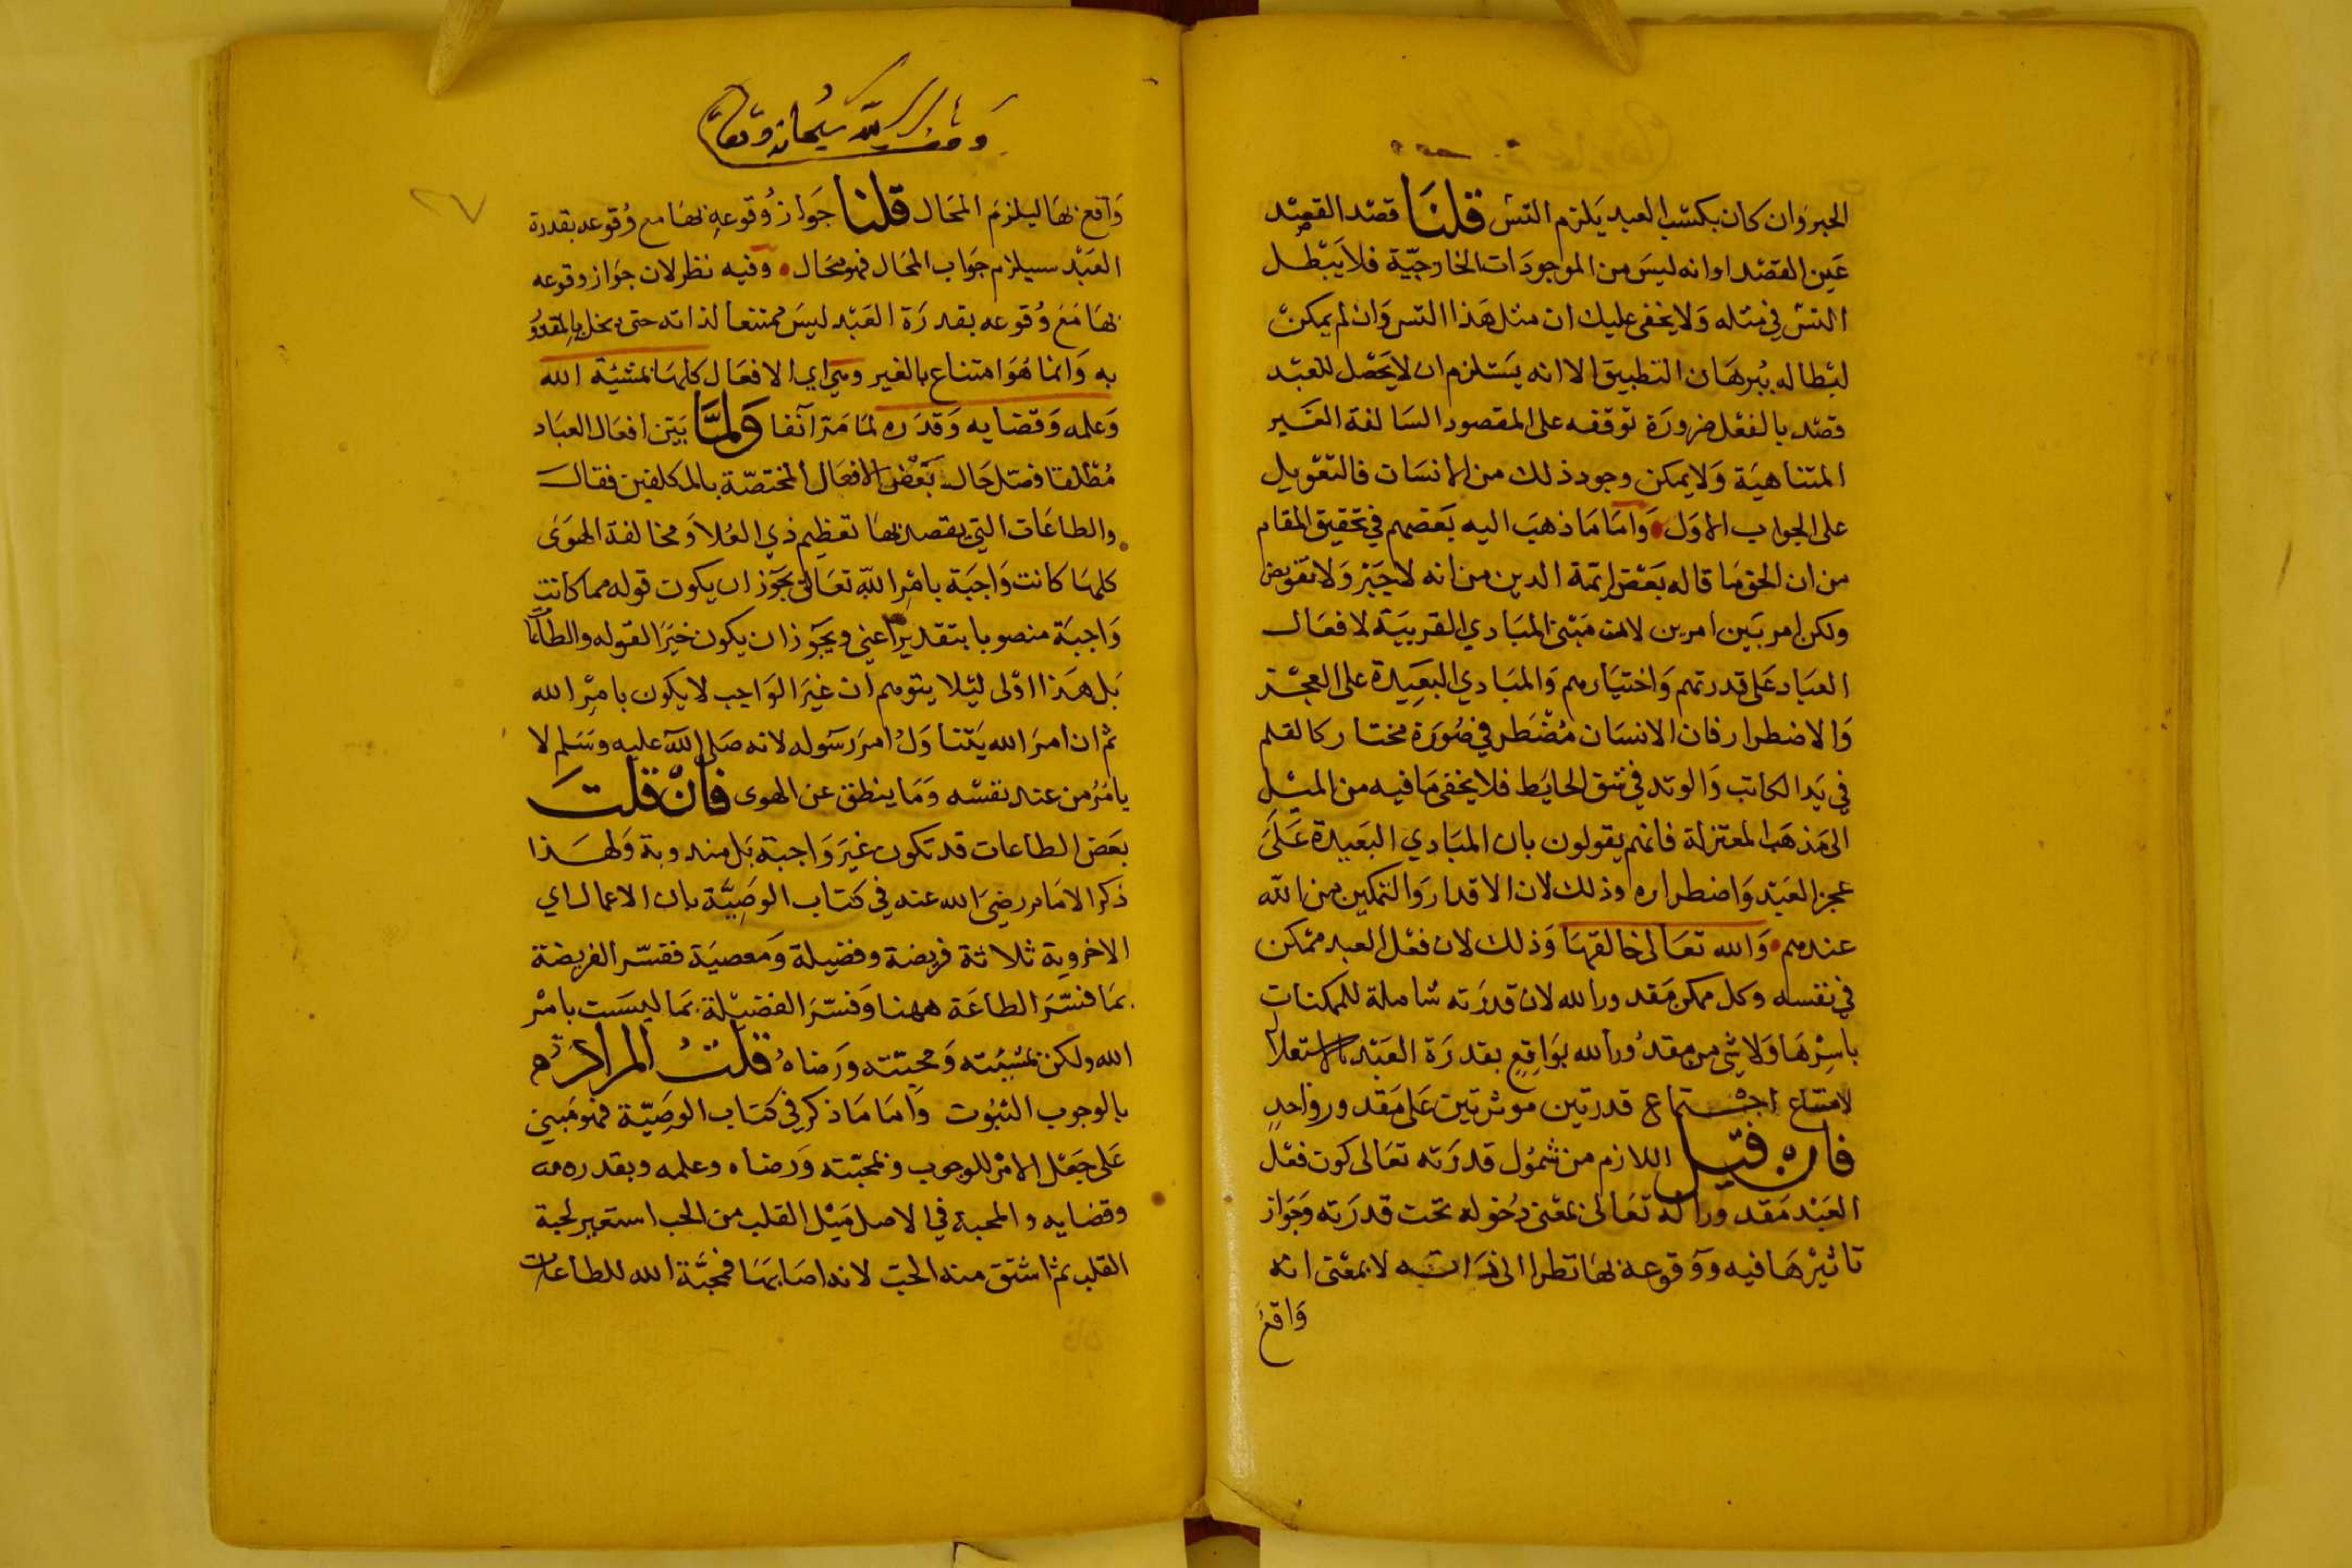 الجبر وان كان بكسب العبد يلزم التس قلنا قصد القصد
عين القصد او انه ليس من الموجودات الخارجيّة فلا يبطل
التس في مثله ولا يخفى عليك ان مثل هذا التس وان لم يمكن
ابطاله ببرهان التطبيق الا انه يستلزم ان لا يحصل للعبد
قصد بالفعل ضرورة توقفه على المقصود السالفة الغير
المتناهية ولا يمكن وجود ذلك من الانسان فالتعويل
على الجواب الاول واما ما ذهب اليه بعضهم في تحقيق المقام
من ان الحق ما قاله بعض ائمة الدين من انه لا جبر ولا تفويض
ولكن امر بين امرين لان مبنى المبادي القريبة لافعال
العباد على قدرتهم واختيارهم والمبادي البعيدة على العجز
والاضطرار فان الانسان مضطر في صورة مختار كالقلم
في يد الكاتب والوتد في شق الحايط فلا يخفى ما فيه من الميل
الى مذهب المعتزلة فانهم يقولون بان المبادي البعيدة على
عجز العبد واضطراره وذلك لان الاقدار والتمكين من الله
عندهم والله تعالى خالقها وذلك لان فعل العبد ممكن
في نفسه وكل ممكن مقدور الله لان قدرته شاملة للممكنات
باسرها ولا شي من مقدور الله بواقع بقدرة العبد استقلالا
لامتناع اجتماع قدرتين موثرتين على مقدور واحد
فان قيل اللازم من شمول قدرته تعالى كون فعل
العبد مقدورا له تعالى بمعنى دخوله تحت قدرته وجواز
تاثيرها فيه ووقوعه بها نظرا الى ذاته لا بمعنى انه
واقع
وقف لله سبحانه وتعالى
٢٧
واقع بها ليلزم المحال قلنا جواز وقوعه بها مع وقوعه بقدرة
العبد سيلزم جواب المحال فهو محال وفيه نظر لان جواز وقوعه
بها مع وقوعه بقدرة العبد ليس ممتنعا لذاته حتى يخل بالمقدور
به وانما هو امتناع بالغير وهي اي الافعال كلها بمشئية الله
وعلمه وقضايه وقدره لما مر آنفا ولما بين افعال العباد
مطلقا فصّل حال بعض الافعال المختصّة بالمكلفين فقال
والطاعات التي يقصد بها تعظيم ذي العلا ومخالفة الهوى
كلها كانت واجبة بامر الله تعالى يجوز ان يكون قوله مما كانت
واجبة منصوبا بتقدير اعني ويجوز ان يكون خبرا لقوله والطاعات
بل هذا اولى ليلا يتوهم ان غير الواجب لا يكون بامر الله
ثم ان امر الله يتناول امر رسوله لانه صلى الله عليه وسلم لا
يامر من عند نفسه وما ينطق عن الهوى فان قلت
بعض الطاعات قد تكون غير واجبة بل مندوبة ولهذا
ذكر الامام رضي الله عنه في كتاب الوصيّة بان الاعمال اي
الاخروية ثلاثة فريضة وفضيلة ومعصية ففسّر الفريضة
بما فسّر الطاعة ههنا وفسّر الفضيلة بما ليست بامر
الله ولكن بمشيئته ومحبته ورضاه قلت المراد
بالوجوب الثبوت واما ما ذكر في كتاب الوصيّة فهو مبني
على جعل الامر للوجوب وبمحبّته ورضاه وعلمه وبقدره
وقضايه والمحبة في الاصل ميل القلب من الحب استعير لحبة
القلب ثم اشتق منه الحب لانه اصابها فمحبّة الله للطاعات